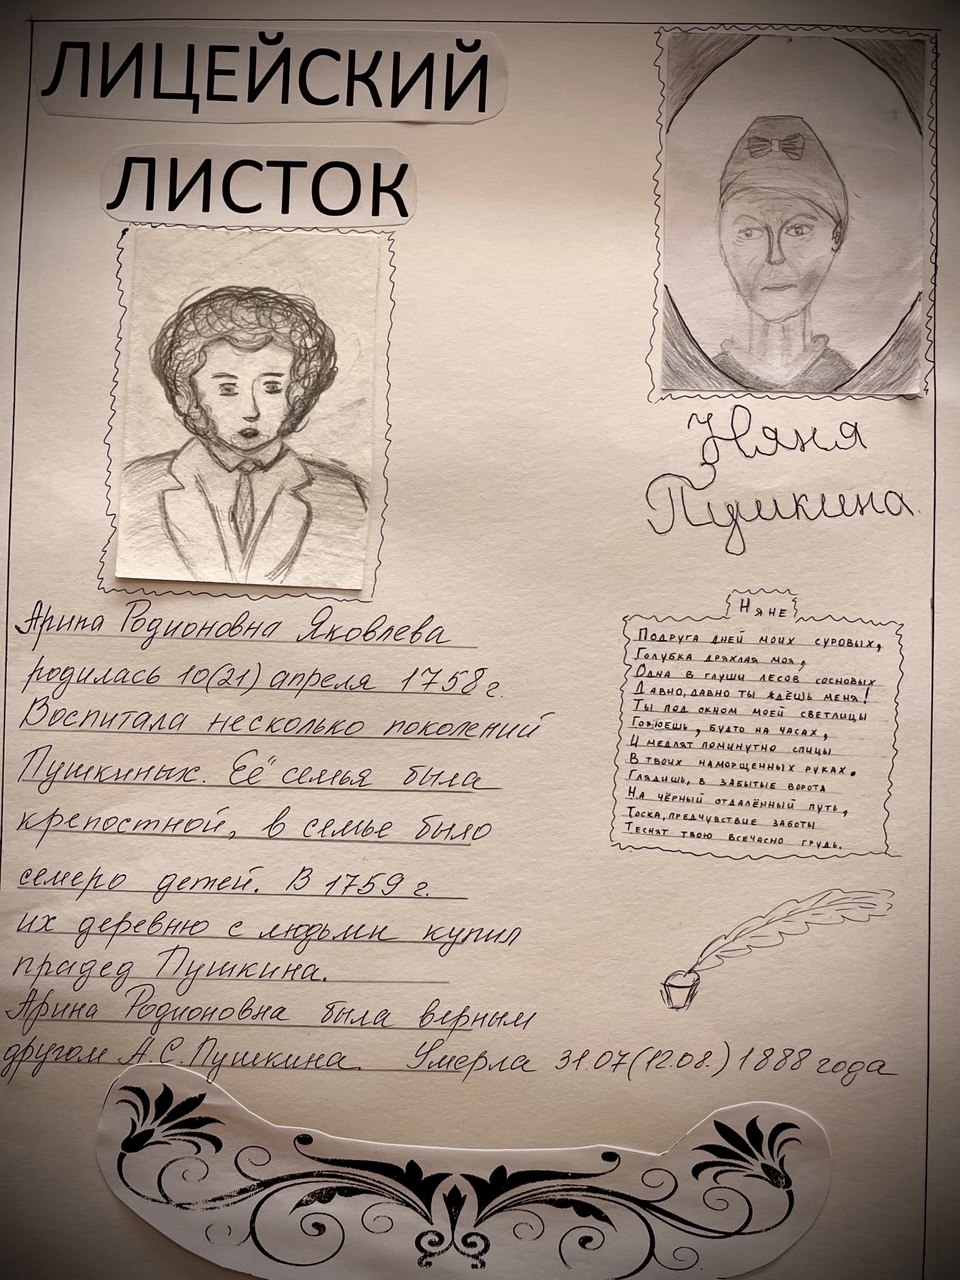 ЛИЦЕЙСКИЙ
ЛИСТОК
Няня
Пушкина
Арина Родионовна Яковлева
родилась 10(21) апреля 1758г.
Воспитала несколько поколений
Пушкиных. Её семья была
крепостной, в семье было
семеро детей. В 1759 г.
их деревню с людьми купил
прадед Пушкина.
Арина Родионовна была верным
другом А.С.Пушкина. Умерла 31.07(12.08.) 1888 года
Няне
Подруга дней моих суровых,
Голубка дряхлая моя,
Одна в глуши лесов сосновых
Давно, давно ты ждёшь меня!
Ты под окном моей светлицы
Горюешь, будто на часах,
И медлят поминутно спицы
В твоих наморщенных руках.
Глядишь, в забытые ворота
На чёрный отдалённый путь,
Тоска, предчувствие заботы
Теснят твою всечасно грудь.